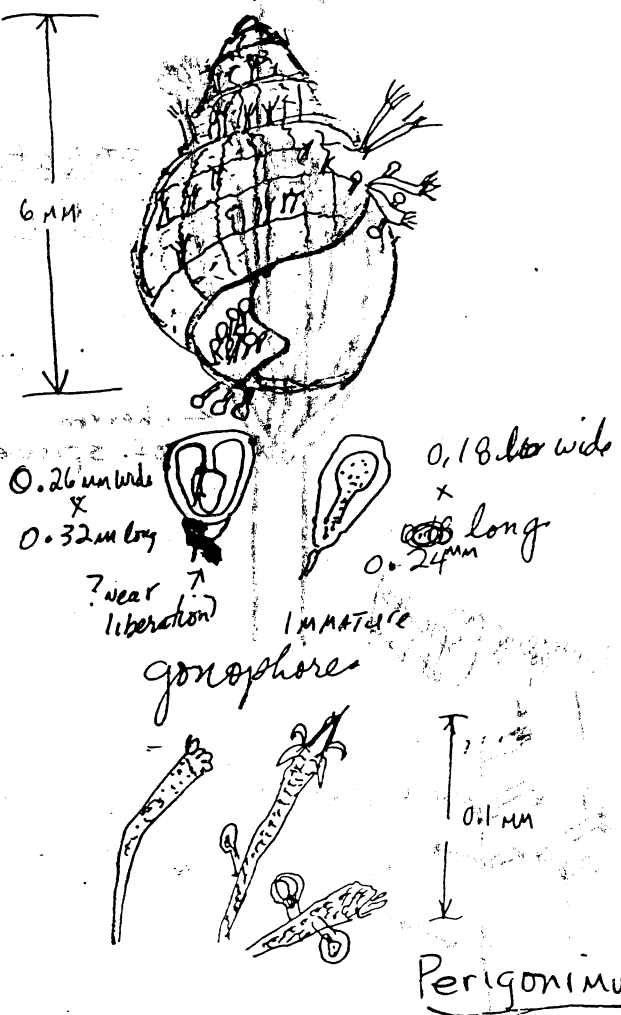 6 MM
0.26 mm wide
x
0.32 m long
? near
liberation)
0,18 wide
x
long
0.24 mm
Immature
gonophores
0.1 MM
Perigonimu